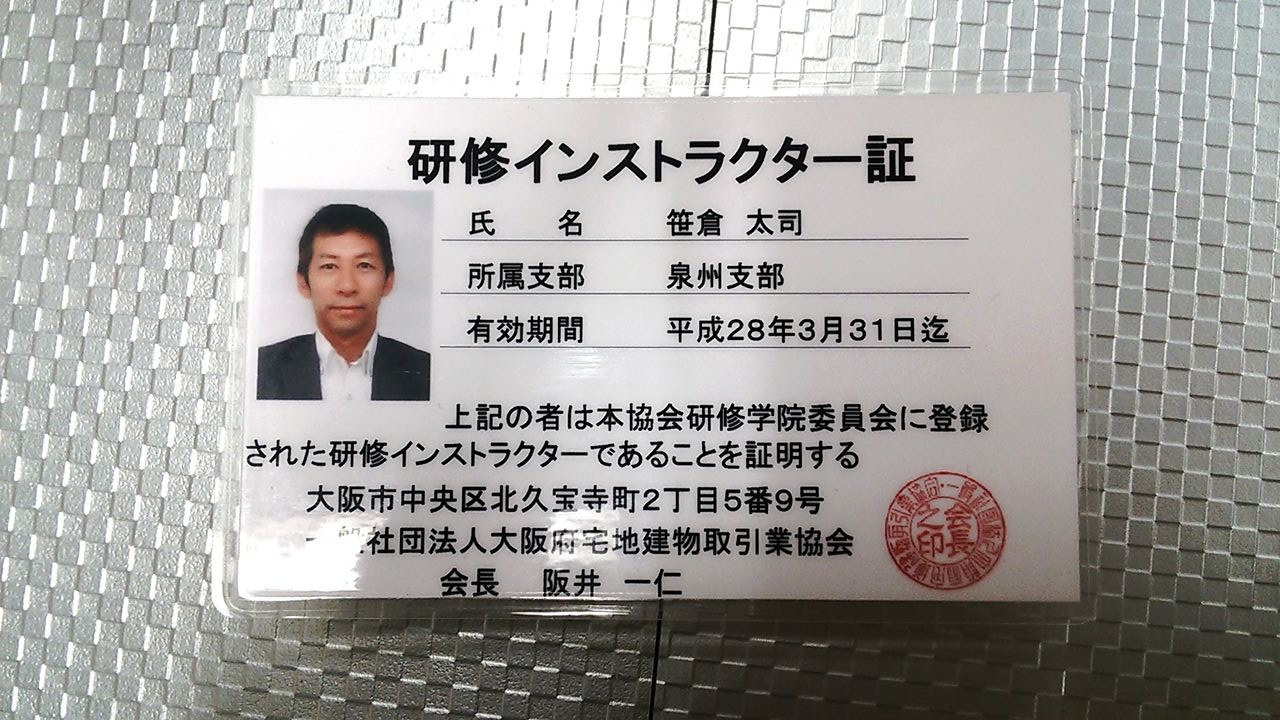 研修インストラクター証
氏　　名　　笹倉　太司
所属支部　　泉州支部
有効期間　　平成28年3月31日迄
上記の者は本協会研修学院委員会に登録
された研修インストラクターであることを証明する
大阪市中央区北久宝寺町2丁目5番9号
一般社団法人大阪府宅地建物取引業協会
会長　阪井　一仁
会長之印